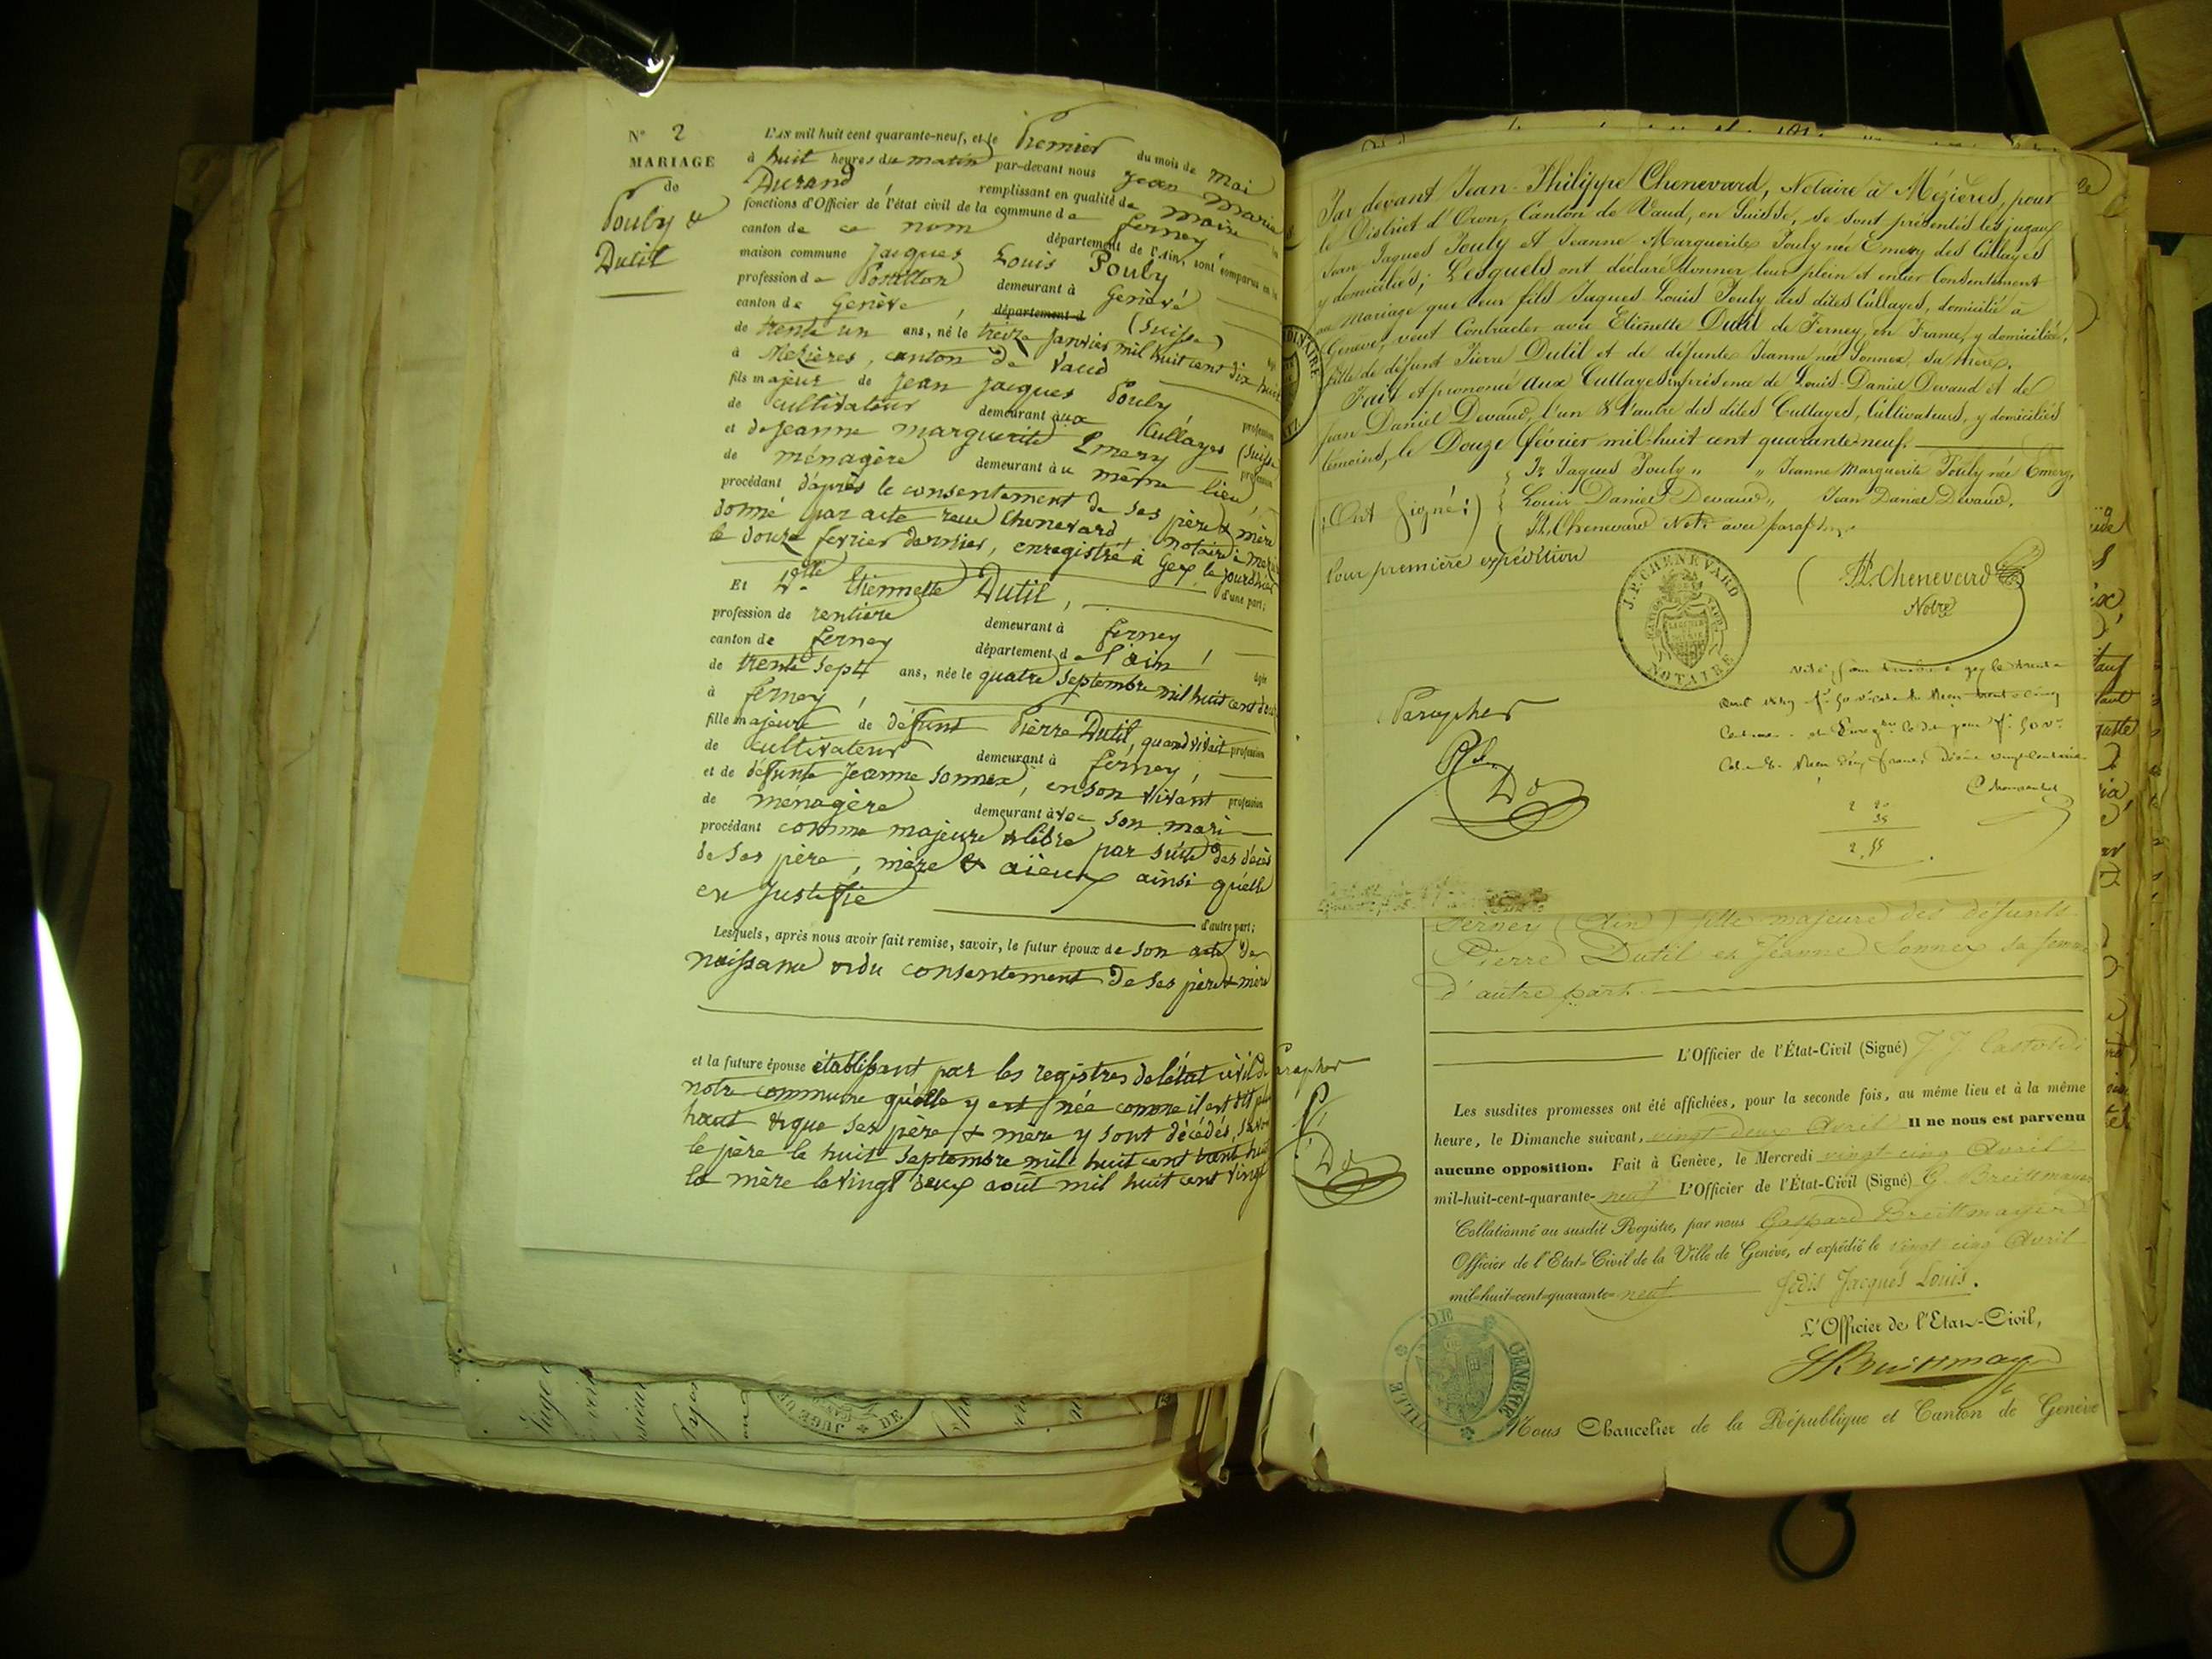 N° 2
MARIAGE
de
Pouly &
Dutil
L'AN mil huit cent quarante-neuf, et le Premier du mois de Mai
à huit heures du matin par-devant nous Jean Marie
Durand remplissant en qualité de Maire les
fonctions d'Officier de l'état civil de la commune de ferney,
canton de ce nom département de l'Ain, sont comparus en la
maison commune Jacques Louis Pouly
profession de Postillon demeurant à Genève
canton de Genève, département d (Suisse)
de trente un ans, né le treize Janvier mil huit cent dix huit
à Mezières, canton de Vaud
fils majeur de Jean Jacques Pouly,
de cultivateur demeurant aux Kullayes (Suisse
et de Jeanne marguerite Emery profession
de ménagère demeurant au même lieu,
procédant d'après le consentement de ses père & mère
donné par acte reçu Chenevard notaire à
le douze fevrier dernier, enregistré à Gex le jourd'hier
d'une part;
Et Dlle Etiennette Dutil,
profession de rentière demeurant à ferney
canton de ferney département de l'ain,
de trente sept ans, née le quatre Septembre mil huit cent
à ferney,
fille majeure de défunt Pierre Dutil, quand vivait profession
de cultivateur demeurant à ferney,
et de défunte Jeanne Sonnex, en son vivant profession
de ménagère demeurant avec son mari
procédant comme majeure & libre par suite des décès
de ses père, mère & aïeux ainsi qu'elle
en Justifie
d'autre part;
Lesquels, après nous avoir fait remise, savoir, le futur époux de son acte de
naissance & du consentement de ses père & mère
et la future épouse établissant par les registres de l'état civil de
notre commune qu'elle y est née comme il est dit plus
haut & que ses père & mère y sont décédés,
le père le huit Septembre mil huit cent
la mère le vingt deux août mil huit cent vingt
Par devant Jean-Philippe Chenevard, Notaire à Mézières, pour
le District d'Oron, Canton de Vaud, en Suisse, se sont présentés les jugaux
Jean Jaques Pouly et Jeanne Marguerite Pouly née Emery des Cullayes
y domiciliés; Lesquels ont déclaré donner leur plein et entier Consentement
au Mariage que leur fils Jaques-Louis Pouly des dites Cullayes, domicilié à
Genève, veut Contracter avec Etiennette Dutil de Ferney, en France, y domiciliée,
fille de défunt Pierre Dutil et de défunte Jeanne née Sonnex, sa mère.
Fait et prononcé aux Cullayes en présence de Louis-Daniel Devaud et de
Jean Daniel Devaud, l'un & l'autre des dites Cullayes, Cultivateurs, y domiciliés
témoins, le Douze février mil-huit cent quarante neuf.
Jn Jaques Pouly " " Jeanne Marguerite Pouly née Emery.
(:Ont signé:) Louis Daniel Devaud " Jean Daniel Devaud.
Ph. Chenevard Notre avec paraphe
Pour première expédition
J. P. CHENEVARD
NOTAIRE
Ph. Chenevard
Notre
Parapher
2 20
35
2,55
Ferney (Ain) fille majeure des défunts
Pierre Dutil et Jeanne Sonnex sa femme
d'autre part.
L'Officier de l'État-Civil (Signé) J J Castoldi
Les susdites promesses ont été affichées, pour la seconde fois, au même lieu et à la même
heure, le Dimanche suivant, vingt-deux Avril Il ne nous est parvenu
aucune opposition. Fait à Genève, le Mercredi vingt-cinq Avril
mil-huit-cent-quarante-neuf L'Officier de l'État-Civil (Signé) G. Breittmayer
Collationné au susdit Registre, par nous Gaspard Breittmayer
Officier de l'Etat-Civil de la Ville de Genève, et expédié le vingt cinq Avril
mil-huit-cent-quarante-neuf Jacques Louis.
L'Officier de l'Etat-Civil,
GBreittmayer
VILLE DE GENEVE
Nous Chancelier de la République et Canton de Genève